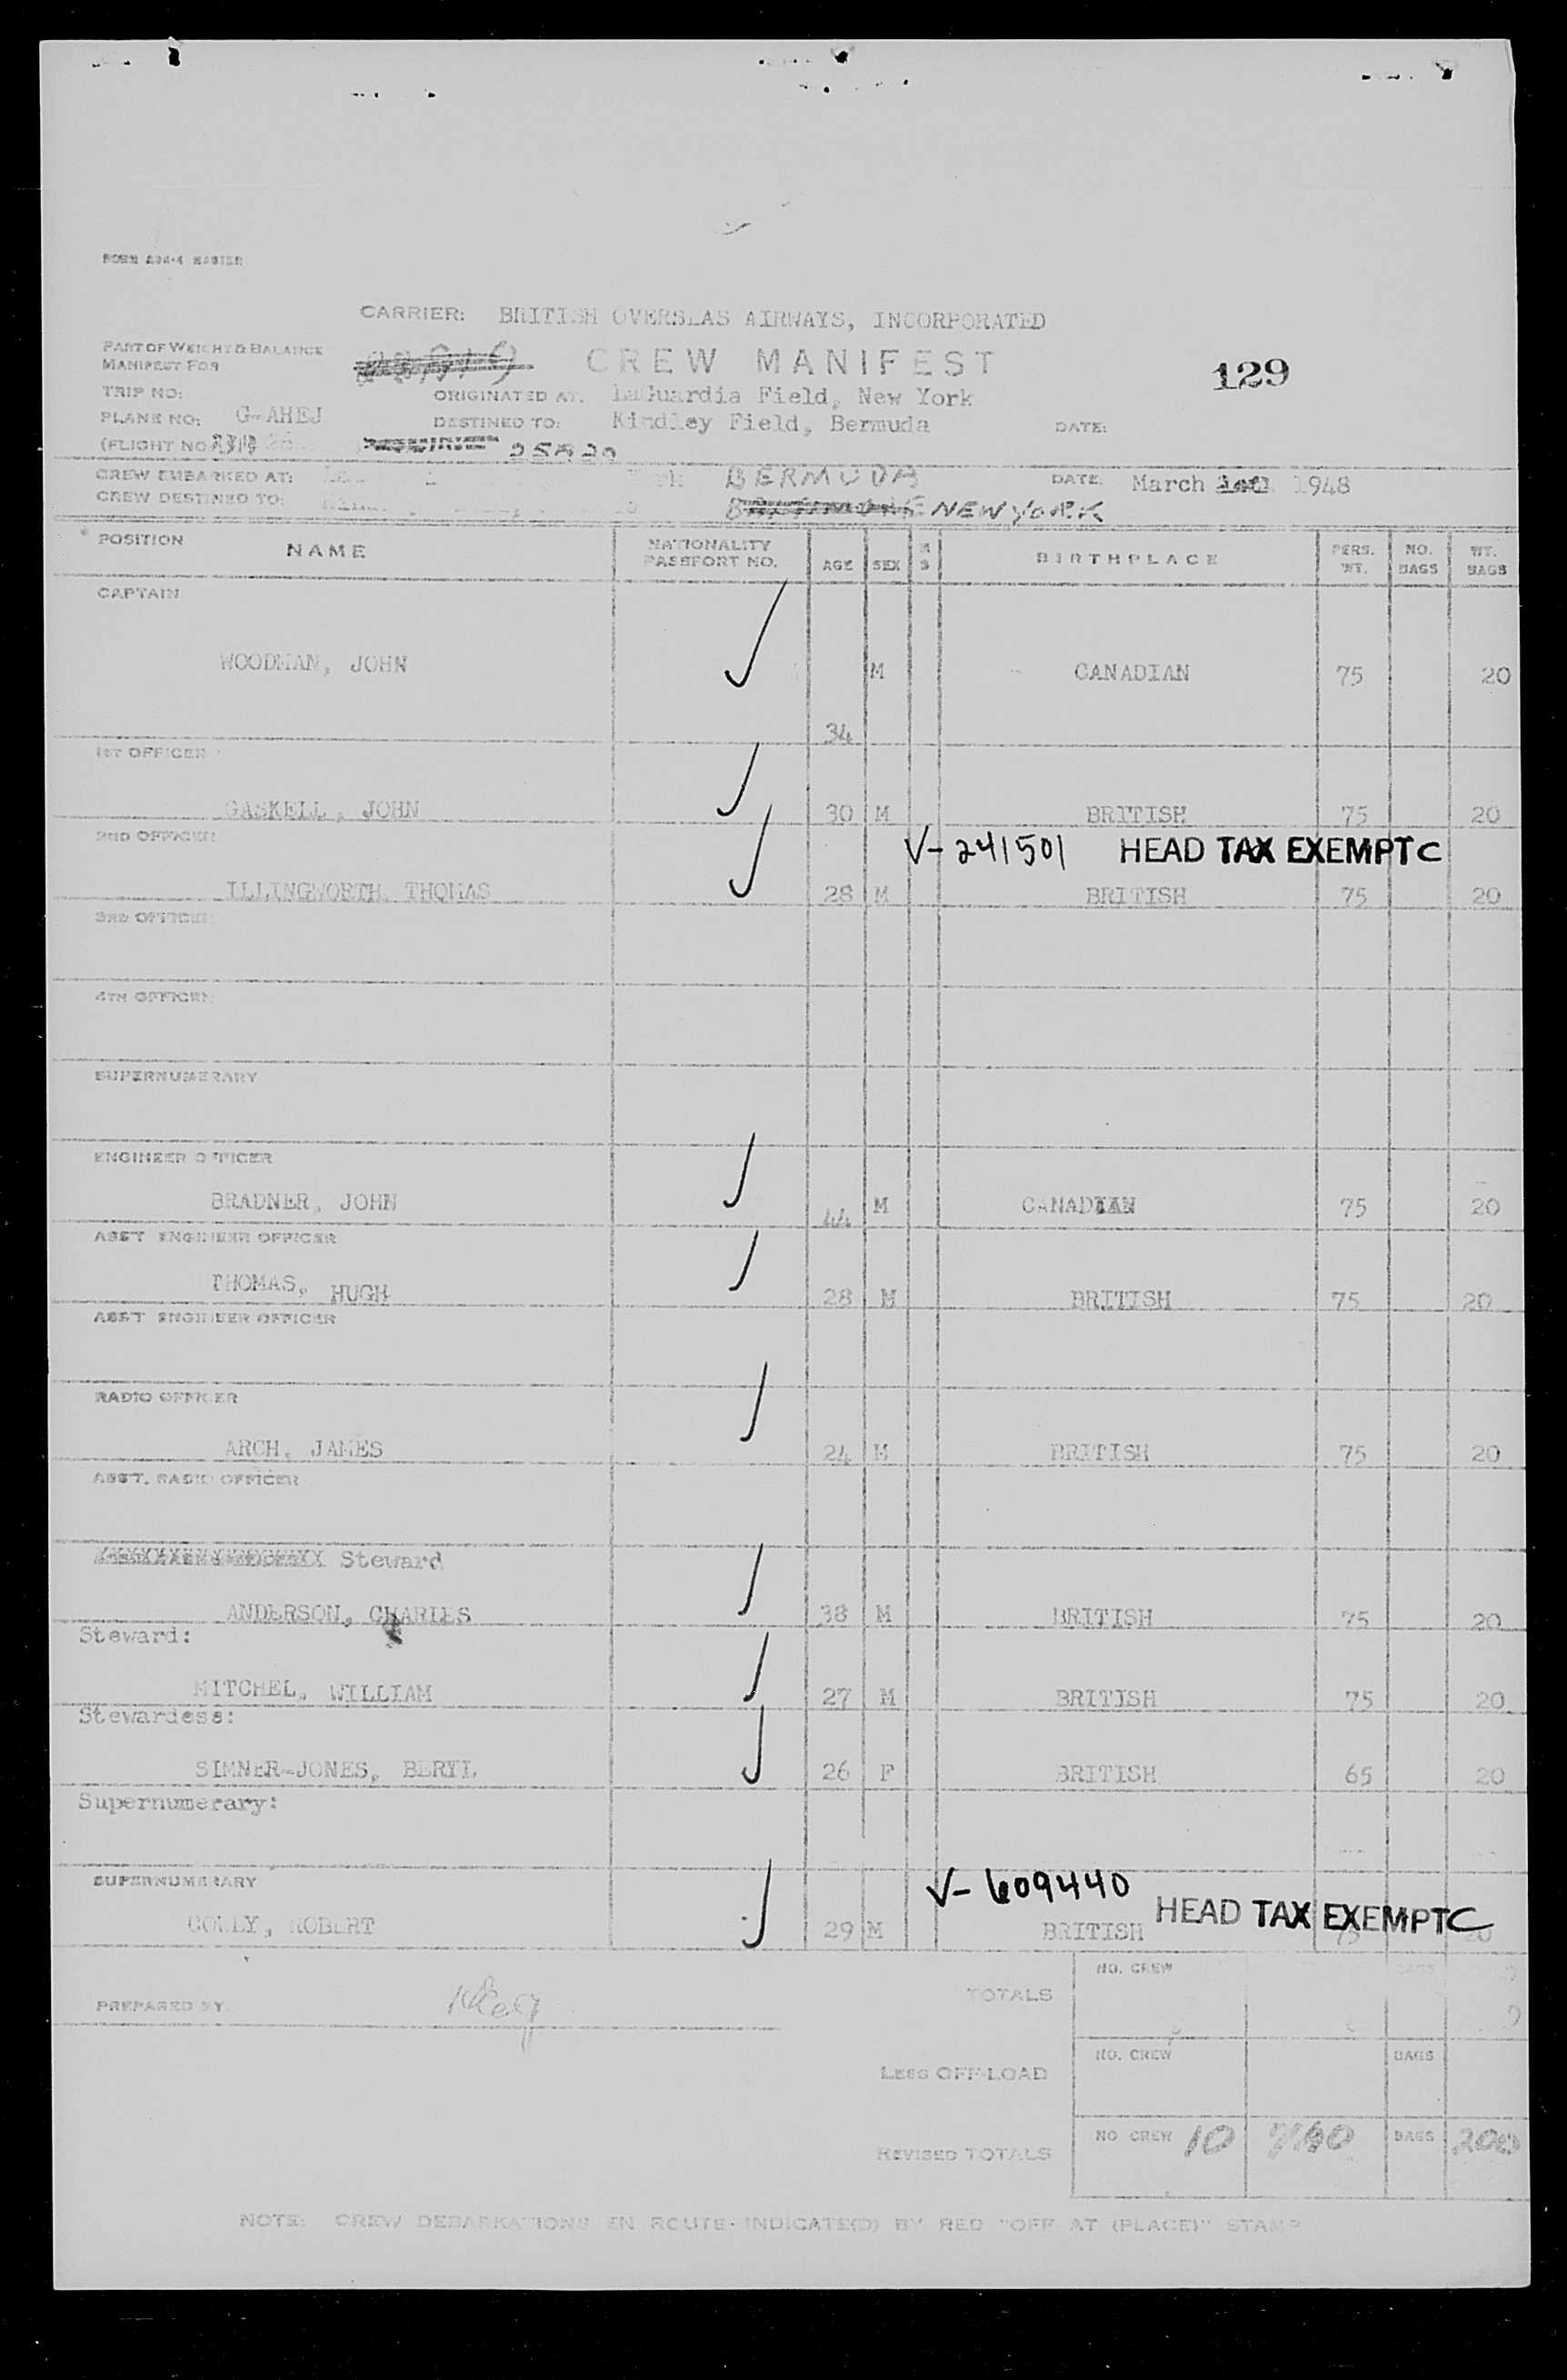 FORM ADA-4 MASTER
CARRIER: BRITISH OVERSEAS AIRWAYS, INCORPORATED
PART OF WEIGHT & BALANCE
MANIFEST FOR
CREW MANIFEST
129
TRIP NO:
ORIGINATED AT: LaGuardia Field, New York
PLANE NO: G-AHEJ
DESTINED TO: Kindley Field, Bermuda
DATE:
(FLIGHT NO
25820
CREW EMBARKED AT: BERMUDA
DATE: March 1948
CREW DESTINED TO: NEW YORK
POSITION NAME NATIONALITY PASSPORT NO. AGE SEX M S BIRTHPLACE PERS. WT. NO. BAGS WT. BAGS
CAPTAIN
WOODMAN, JOHN 34 M CANADIAN 75 20
1ST OFFICER
GASKELL, JOHN 30 M BRITISH 75 20
2ND OFFICER V-241501 HEAD TAX EXEMPT C
ILLINGWORTH, THOMAS 28 M BRITISH 75 20
3RD OFFICER
4TH OFFICER
SUPERNUMERARY
ENGINEER OFFICER
BRADNER, JOHN 44 M CANADIAN 75 20
ASST ENGINEER OFFICER
THOMAS, HUGH 28 M BRITISH 75 20
ASST ENGINEER OFFICER
RADIO OFFICER
ARCH, JAMES 24 M BRITISH 75 20
ASST. RADIO OFFICER
Steward
ANDERSON, CHARLES 38 M BRITISH 75 20
Steward:
MITCHEL, WILLIAM 27 M BRITISH 75 20
Stewardess:
SIMNER-JONES, BERYL 26 F BRITISH 65 20
Supernumerary:
SUPERNUMERARY V-609440 HEAD TAX EXEMPT C
ROBERT 29 M BRITISH 75 20
PREPARED BY
TOTALS NO. CREW BAGS
LESS OFF-LOAD NO. CREW BAGS
REVISED TOTALS NO CREW 10 BAGS 200
NOTE: CREW DEBARKATIONS EN ROUTE-INDICATE(D) BY RED "OFF AT (PLACE)" STAMP